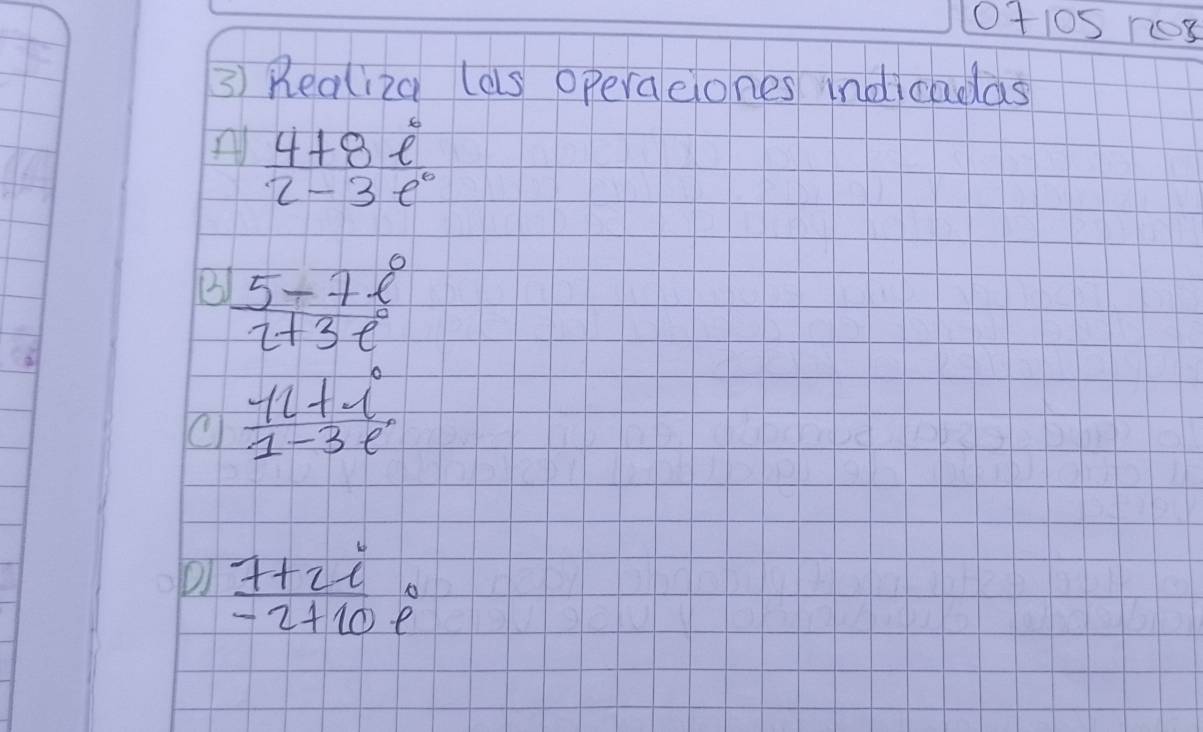 07/05
3) Realiza las operaciones indicadas
A) 4+8i
2-3i
B) 5-7i
2+3i
C) 11+i
1-3i
D) 7+2i
-2+10i